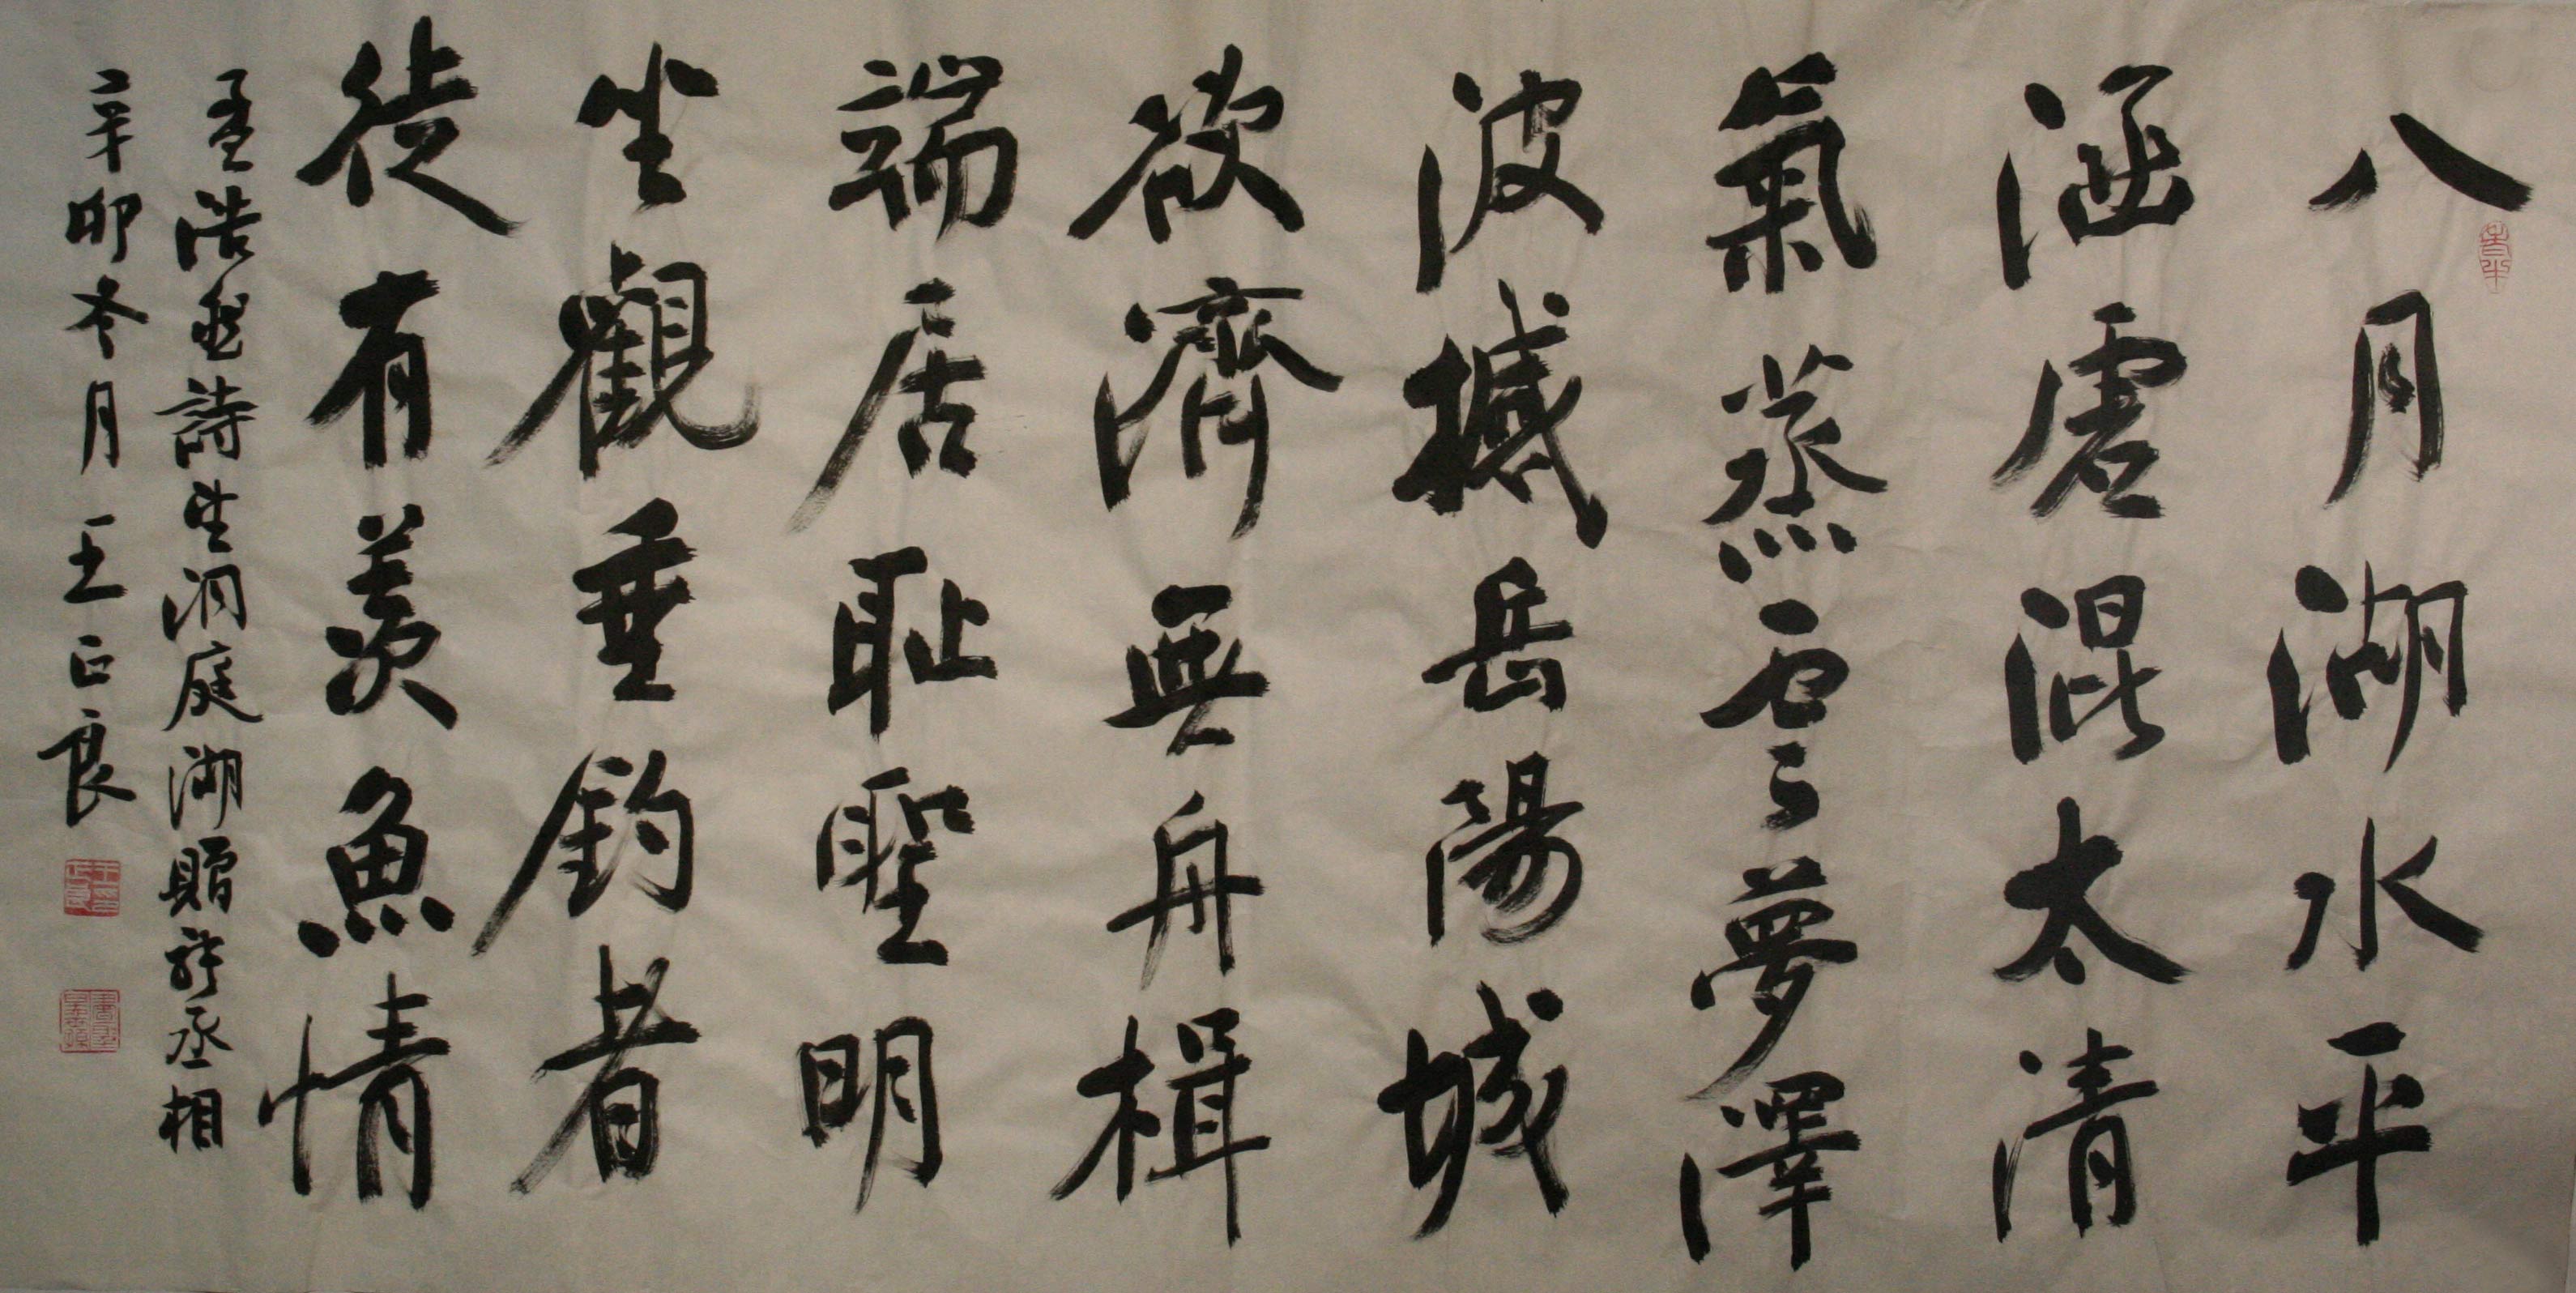 八月湖水平
涵虛混太清
氣蒸雲夢澤
波撼岳陽城
欲濟無舟楫
端居恥聖明
坐觀垂釣者
徒有羨魚情
孟浩然詩望洞庭湖贈張丞相
辛卯冬月王正良